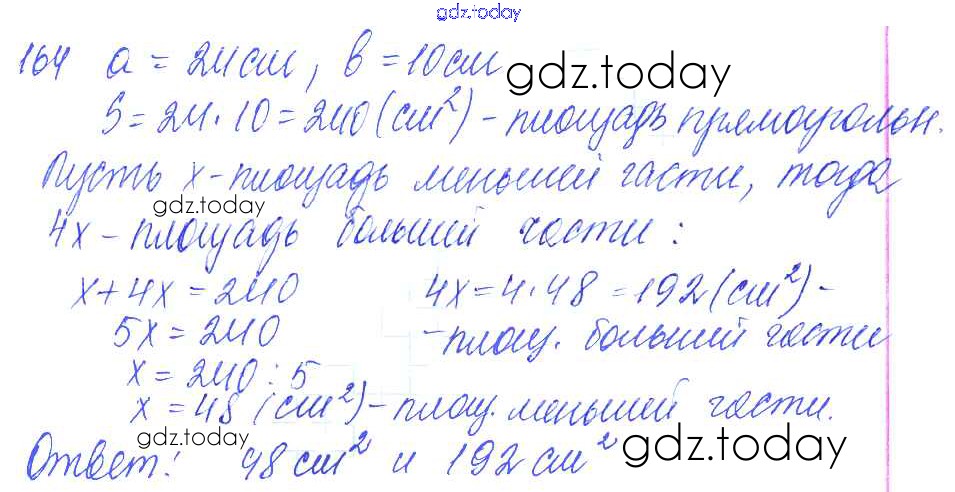 gdz.today
164 a = 24см, в = 10см
gdz.today
S = 24 · 10 = 240 (см²) - площадь прямоугольн.
Пусть x - площадь меньшей части, тогда
gdz.today
4x - площадь большей части :
x + 4x = 240 4x = 4 · 48 = 192 (см²) -
5x = 240 - площ. большей части
x = 240 : 5
x = 48 (см²) - площ. меньшей части.
gdz.today
Ответ: 48 см² и 192 см²
gdz.today